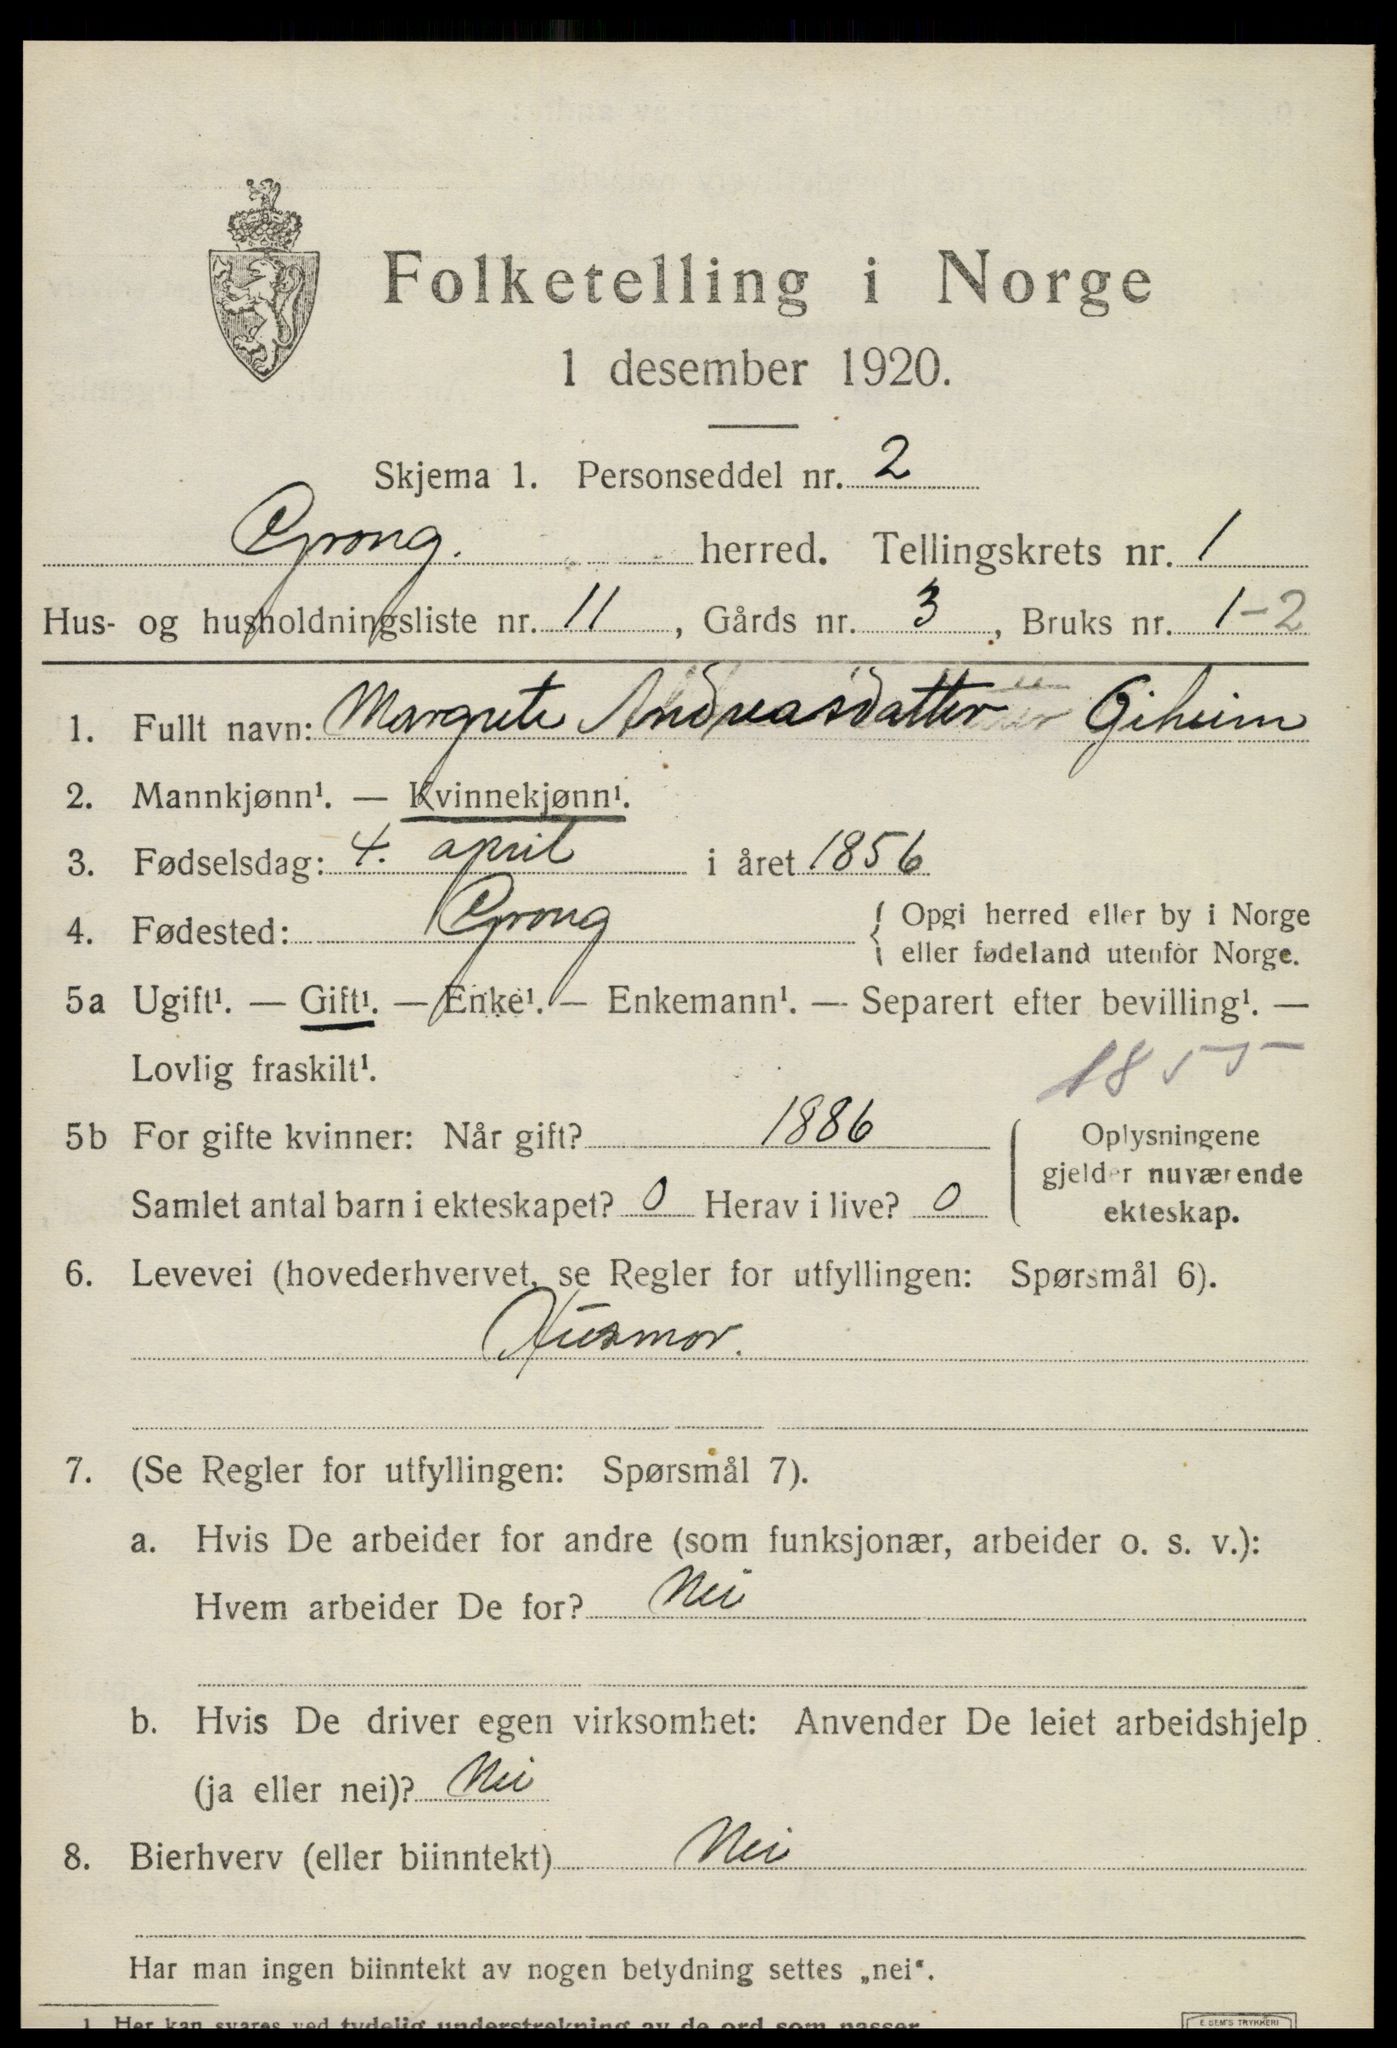 Folketelling i Norge
1 desember 1920.
Skjema 1. Personseddel nr. 2
Grong. herred. Tellingskrets nr. 1
Hus- og husholdningsliste nr. 11, Gårds nr. 3, Bruks nr. 1-2
1. Fullt navn: Margrete Andreasdatter Giheim
2. Mannkjønn¹. — Kvinnekjønn¹.
3. Fødselsdag: 4. april i året 1856
4. Fødested: Grong { Opgi herred eller by i Norge
eller fødeland utenfor Norge.
5a Ugift¹. — Gift¹. — Enke¹. — Enkemann¹. — Separert efter bevilling¹. —
Lovlig fraskilt¹.
1855
5b For gifte kvinner: Når gift? 1886
Samlet antal barn i ekteskapet? 0 Herav i live? 0
Oplysningene
gjelder nuværende
ekteskap.
6. Levevei (hovederhvervet, se Regler for utfyllingen: Spørsmål 6).
Husmor.
7. (Se Regler for utfyllingen: Spørsmål 7).
a. Hvis De arbeider for andre (som funksjonær, arbeider o. s. v.):
Hvem arbeider De for? Nei
b. Hvis De driver egen virksomhet: Anvender De leiet arbeidshjelp
(ja eller nei)? Nei
8. Bierhverv (eller biinntekt) Nei
Har man ingen biinntekt av nogen betydning settes „nei“.
1 Her kan svares ved tydelig understrekning av de ord som passer.
E. SEM'S TRYKKERI